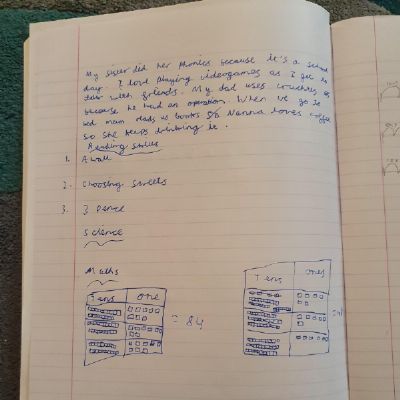 My sister did her phonics because it's a school
day. I love playing videogames as I get to
talk with friends. My dad uses crouches as
because he had an operation. When we go to
bed mam reads us books Nanna loves coffee
so she keeps drinking it.
Reading stories
1. A walk
2. Choosing sweets
3. Dance
Science
Maths
Tens One
= 84
Tens Ones